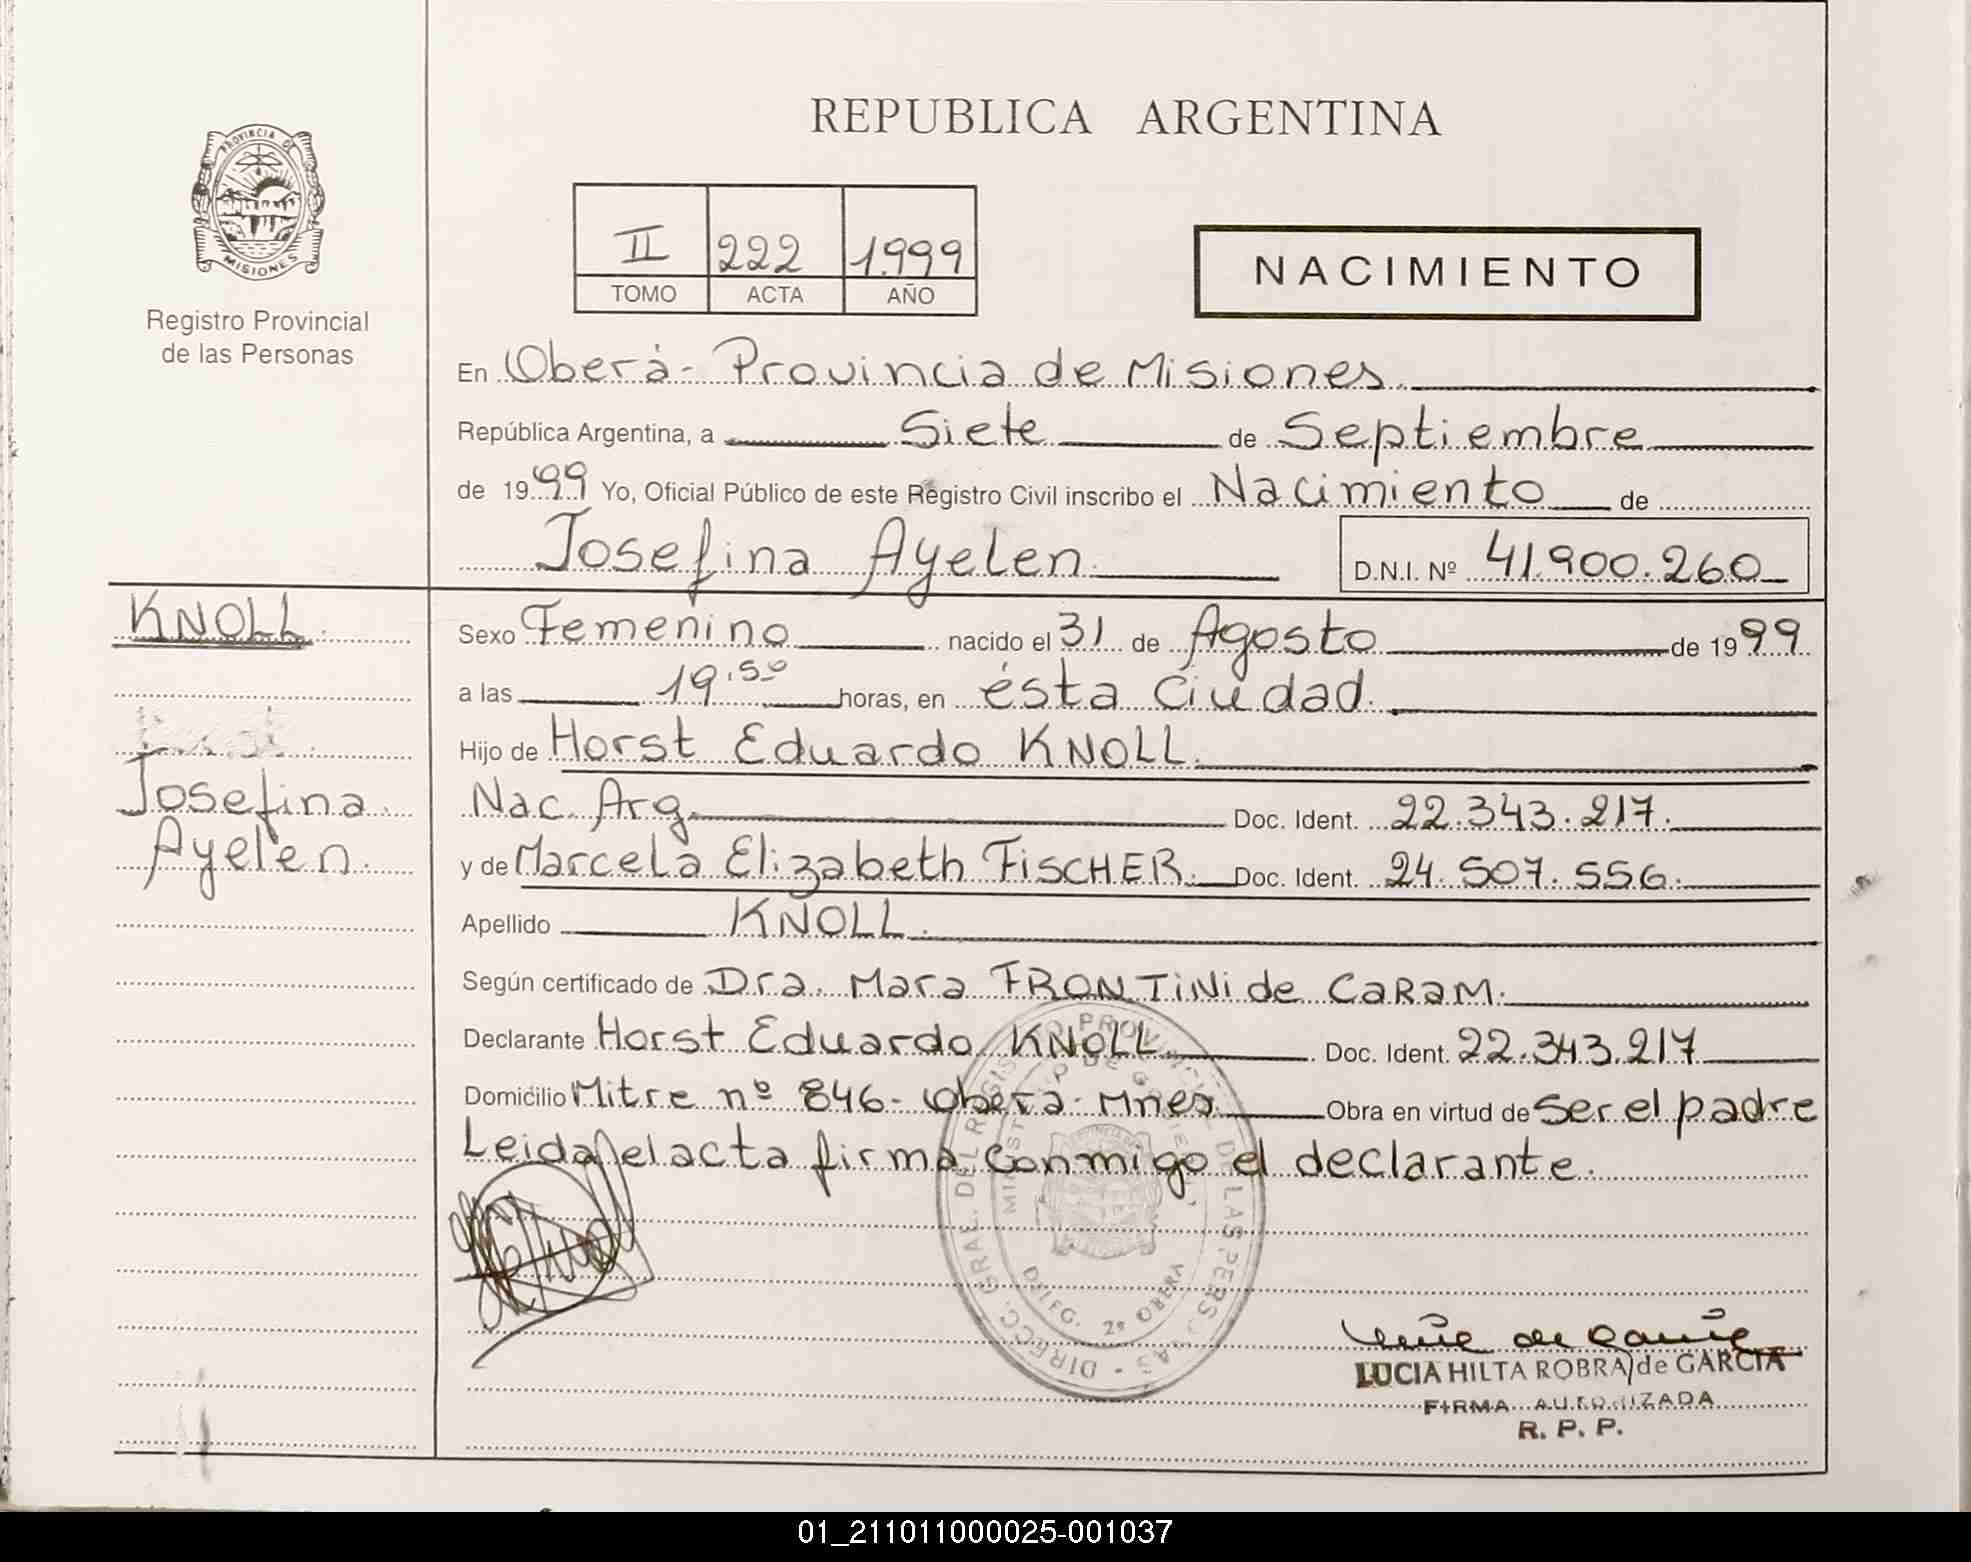 PROVINCIA DE
MISIONES
Registro Provincial
de las Personas
REPUBLICA ARGENTINA
II 222 1.999
TOMO ACTA AÑO
NACIMIENTO
En Oberá- Provincia de Misiones
República Argentina, a Siete de Septiembre
de 1999 Yo, Oficial Público de este Registro Civil inscribo el Nacimiento de
Josefina Ayelen D.N.I. Nº 41.900.260
KNOLL
Josefina
Ayelen.
Sexo Femenino nacido el 31 de Agosto de 1999
a las 19:50 horas, en ésta Ciudad.
Hijo de Horst Eduardo KNOLL.
Nac. Arg. Doc. Ident. 22.343.217.
y de Marcela Elizabeth FISCHER. Doc. Ident. 24.507.556.
Apellido KNOLL.
Según certificado de Dra. Mara FRONTINI de CARAM.
Declarante Horst Eduardo KNOLL Doc. Ident. 22.343.217
Domicilio Mitre nº 846- Oberá- Mnes Obra en virtud de Ser el padre
Leida el acta firma conmigo el declarante.
DIRECC. GRAL. DEL REGISTRO PROVINCIAL DE LAS PERSONAS
MINISTERIO DE GOBIERNO
DELEG. 2ª OBERA
LUCIA HILTA ROBRA de GARCIA
FIRMA AUTORIZADA
R. P. P.
01_211011000025-001037